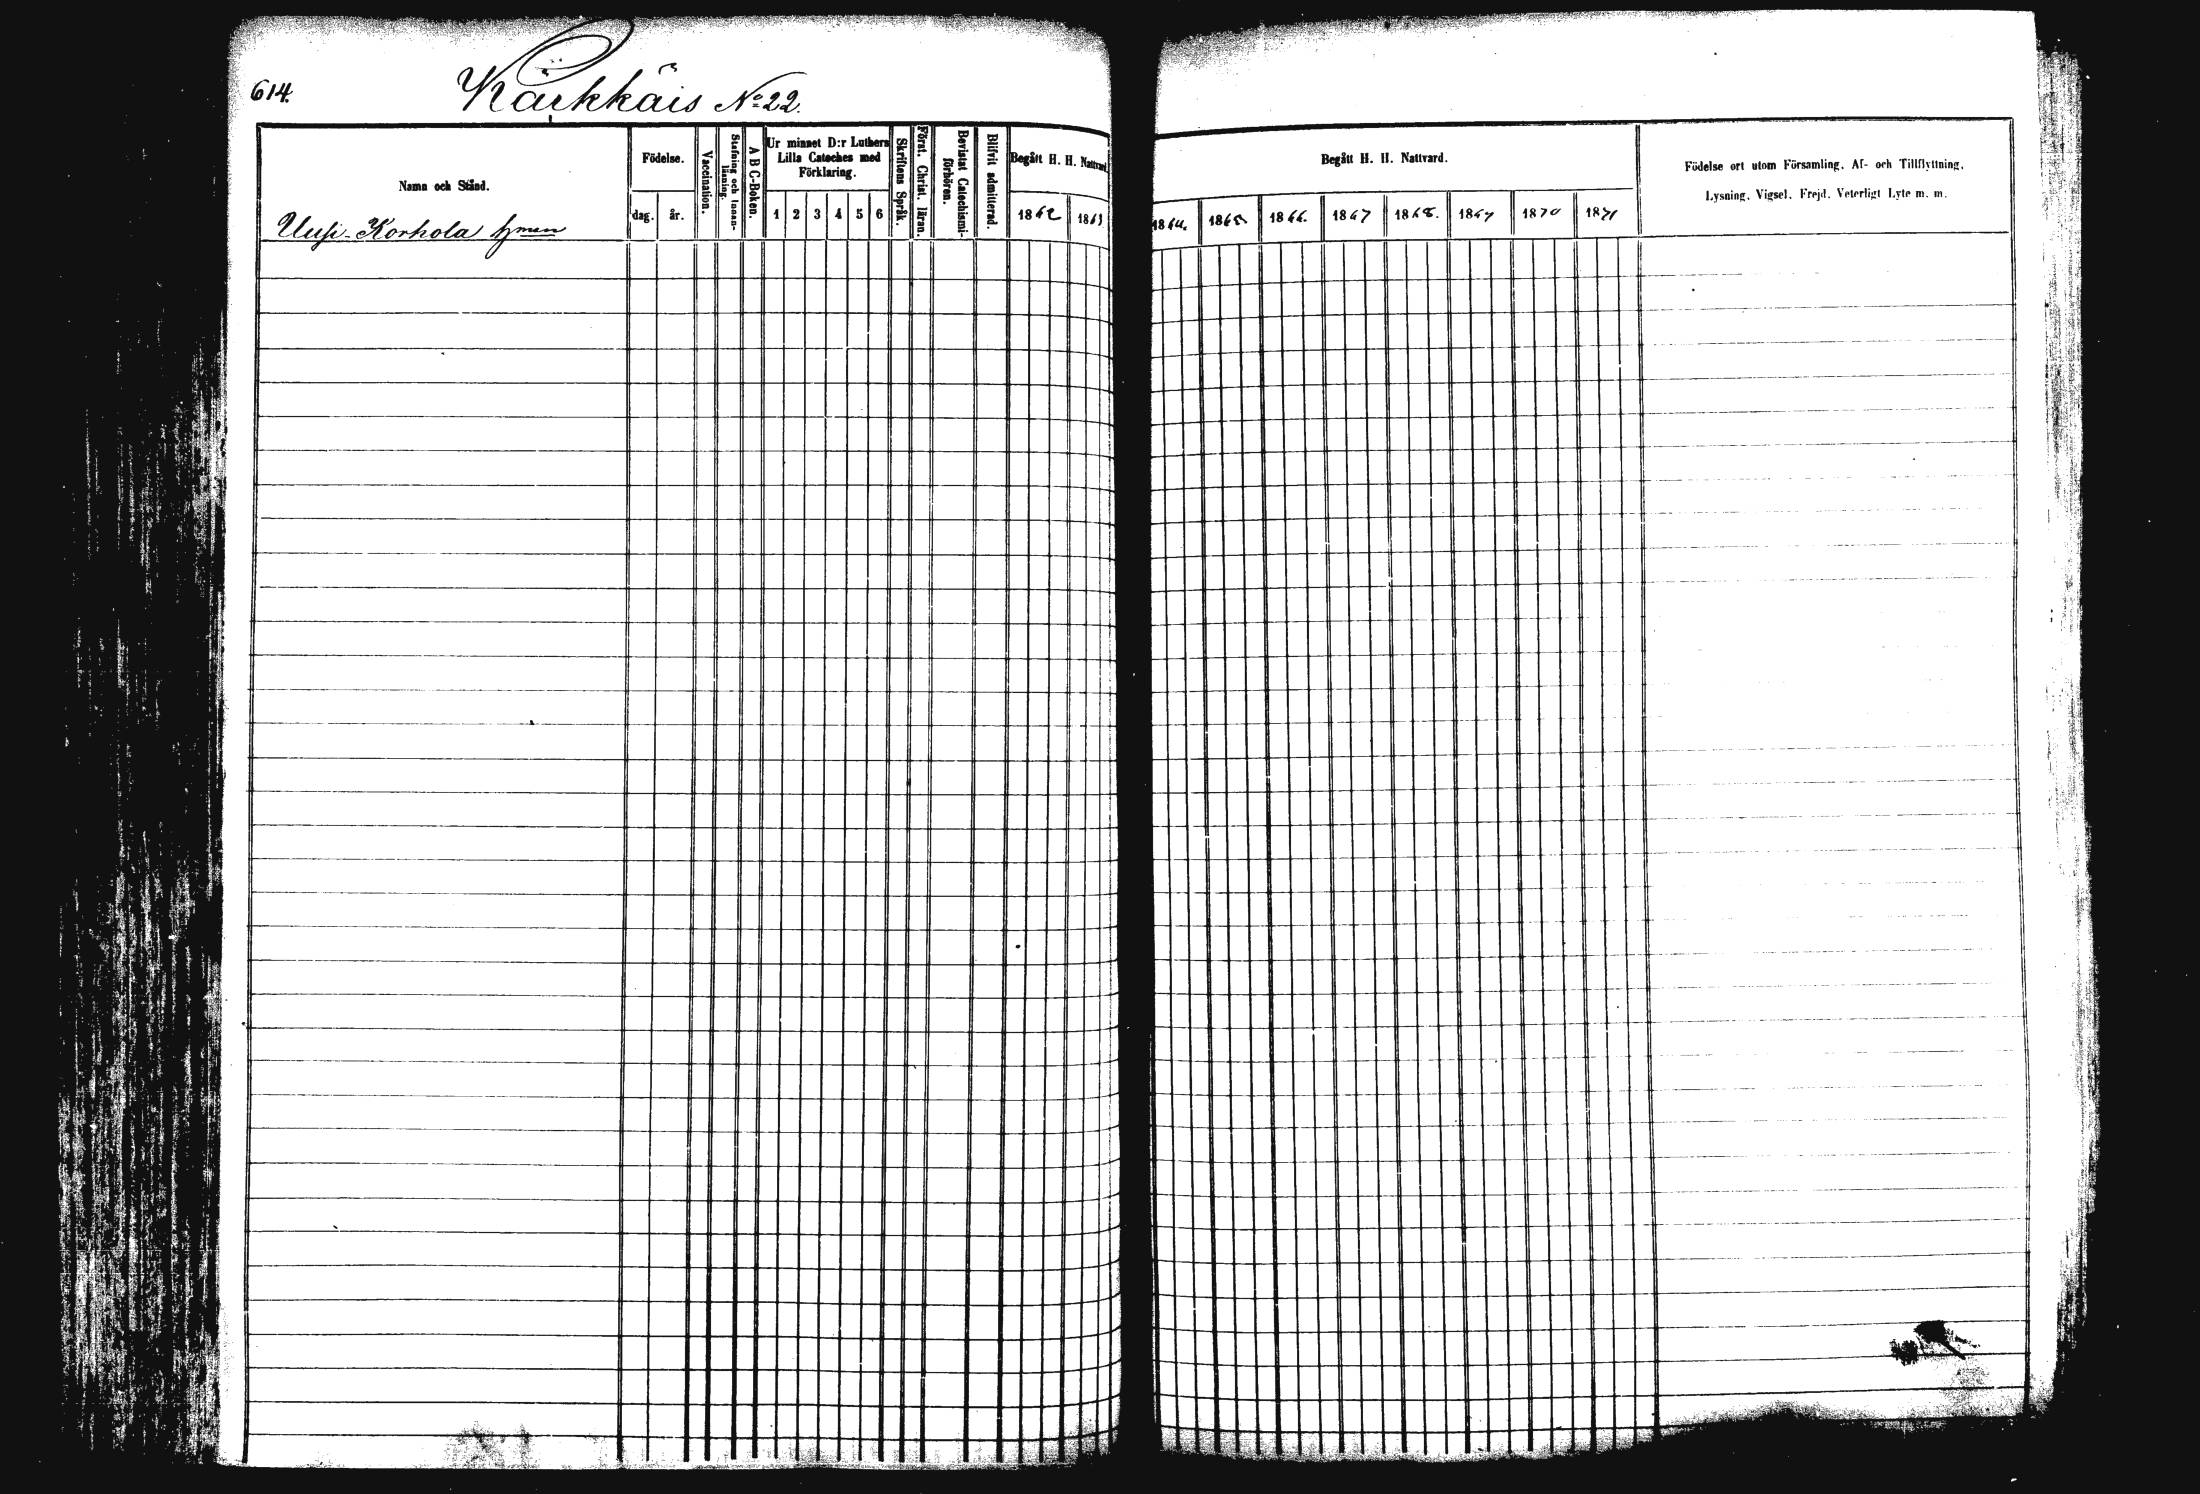 614.
Kärkkäis No 22.
Namn och Stånd.
Uusi-Korhola hman
Födelse.
dag. år.
Vaccination.
Stafning och Innan-
läsning.
A B C-Boken.
Ur minnet D:r Luthers
Lilla Cateches med
Förklaring.
1 2 3 4 5 6
Skriftens Språk.
Först. Christ. läran.
Bevistat Catechismi-
förhören.
Blifvit admitterad.
Begått H. H. Nattvard
1862 1863
Begått H. H. Nattvard.
1864. 1865 1866. 1867 1868. 1869 1870 1871
Födelse ort utom Församling, Af- och Tillflyttning,
Lysning, Vigsel, Frejd, Veterligt Lyte m. m.